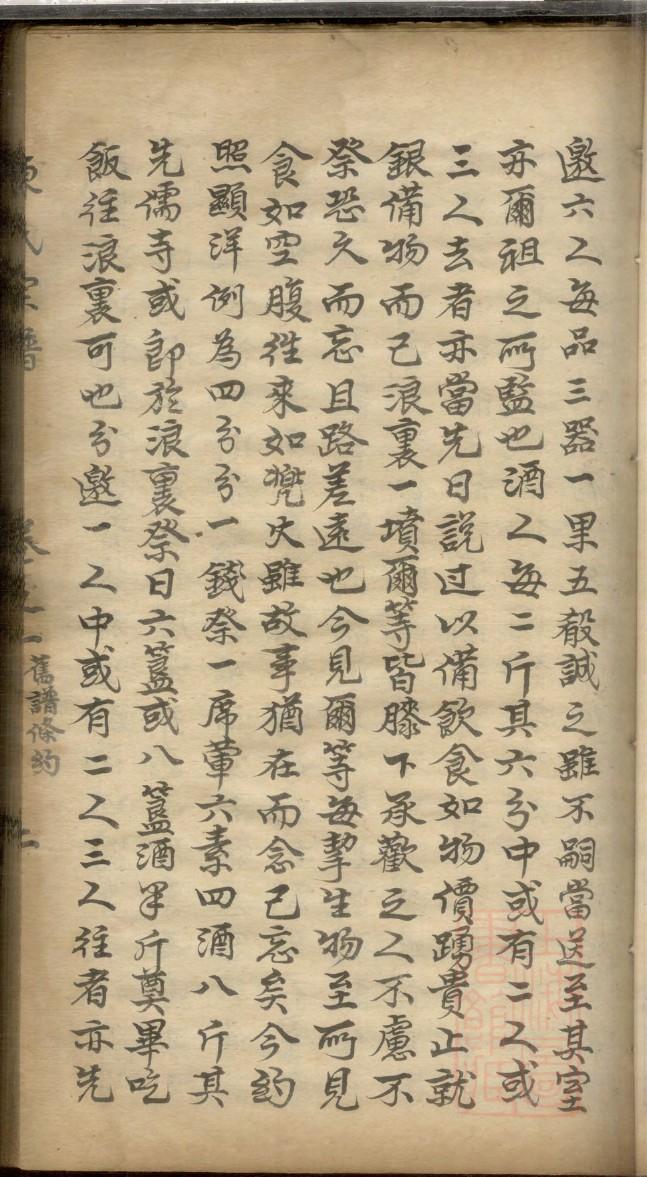 邀六人每品三器一果五殽誠之雖不嗣當送至其室
亦爾祖之所監也酒人每二斤其六分中或有二人或
三人去者亦當先日説过以備飲食如物價踴貴止就
銀備物而已浪裏一墳爾等皆膝下承歡之人不慮不
祭恐久而忘且路差遠也今見爾等每挈生物至所見
食如空腹徃來如兠火雖故事猶在而念已忘矣今約
照顯洋例為四分分一錢祭一席葷六素四酒八斤其
先儒寺或即於浪裏祭日六簋或八簋酒半斤奠畢吃
飯徃浪裏可也分邀一人中或有二人三人徃者亦先
氏宗譜 卷之一 舊譜條約